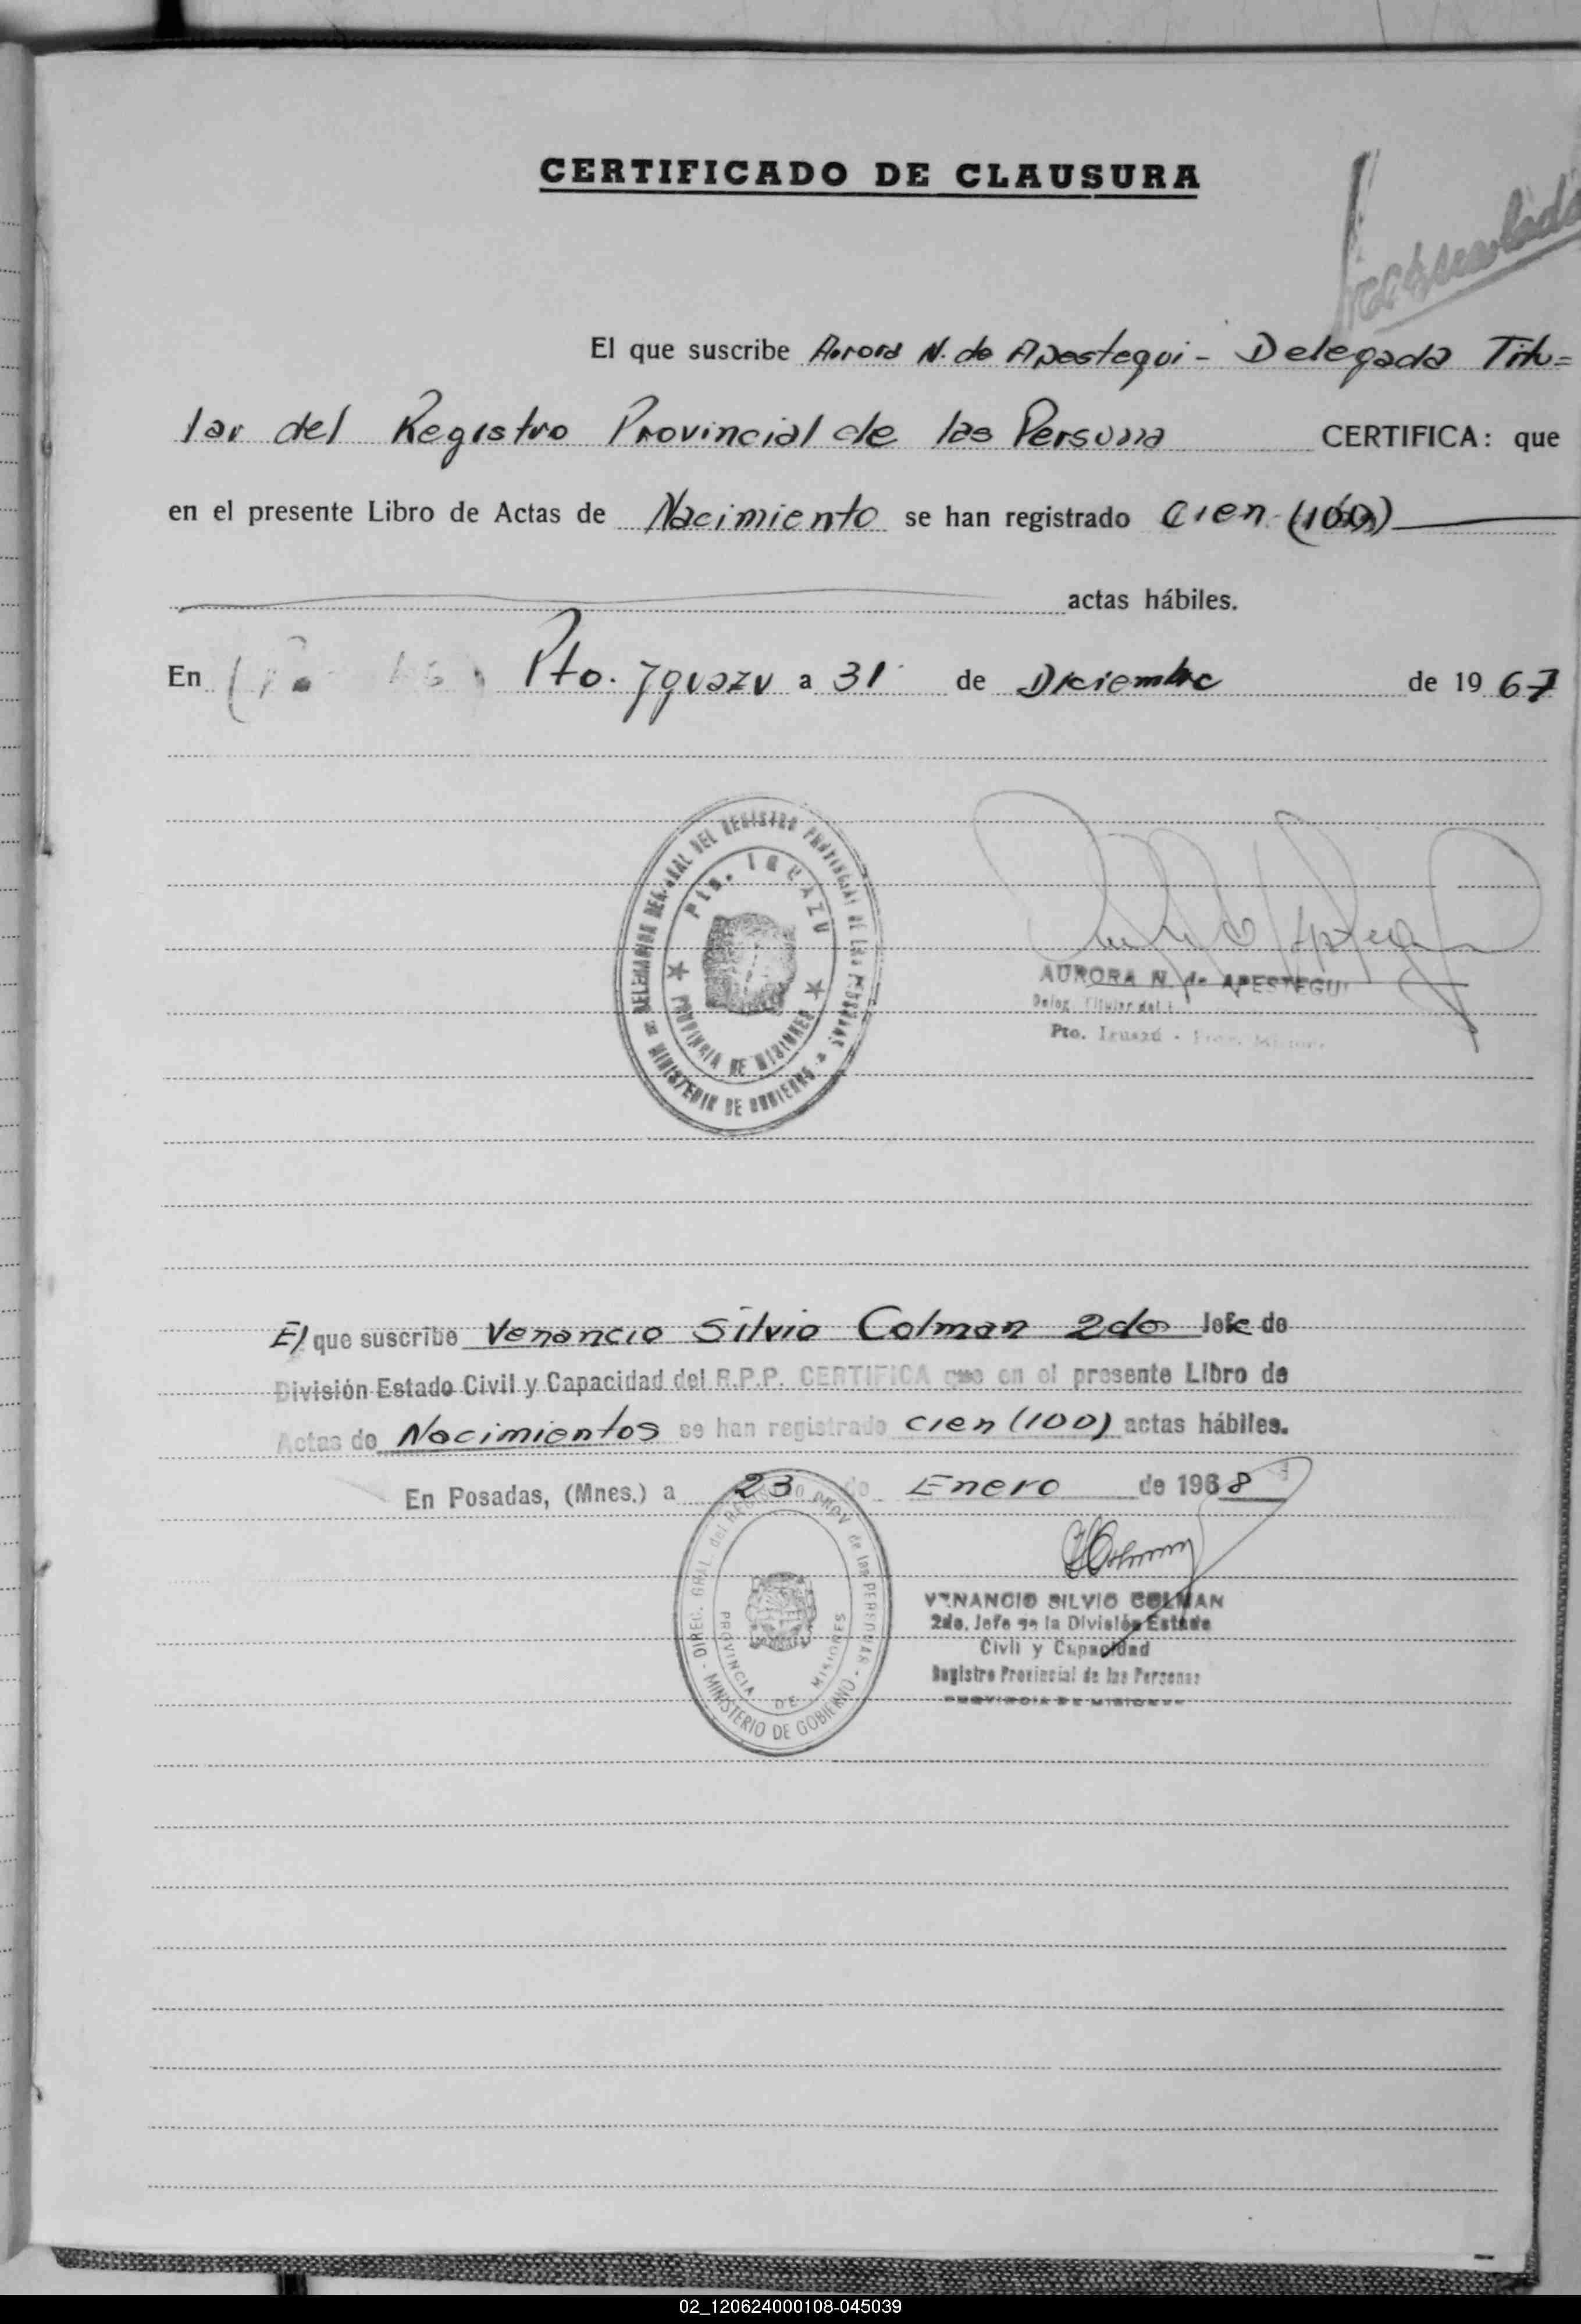 CERTIFICADO DE CLAUSURA
El que suscribe Aurora N. de Apestegui - Delegada Titu=
lar del Registro Provincial de las Persona CERTIFICA: que
en el presente Libro de Actas de Nacimiento se han registrado Cien (100)
actas hábiles.
En Pto. Iguazu a 31 de Diciembre de 1967
DELEGACION DEL REGISTRO PROVINCIAL DE LAS PERSONAS
Pto. IGUAZU
PROVINCIA DE MISIONES
MINISTERIO DE GOBIERNO
AURORA N. de APESTEGUI
Deleg. Titular del
Pto. Iguazú - Prov. Misiones
El que suscribe Venancio Silvio Colman 2do Jefe de
División Estado Civil y Capacidad del R.P.P. CERTIFICA que en el presente Libro de
Actas de Nacimientos se han registrado cien (100) actas hábiles.
En Posadas, (Mnes.) a 23 de Enero de 1968
DIREC. GRAL. del REGISTRO PROV. de las PERSONAS - MINISTERIO DE GOBIERNO -
PROVINCIA DE MISIONES
VENANCIO SILVIO COLMAN
2do. Jefe de la División Estado
Civil y Capacidad
Registro Provincial de las Personas
PROVINCIA DE MISIONES
02_120624000108-045039